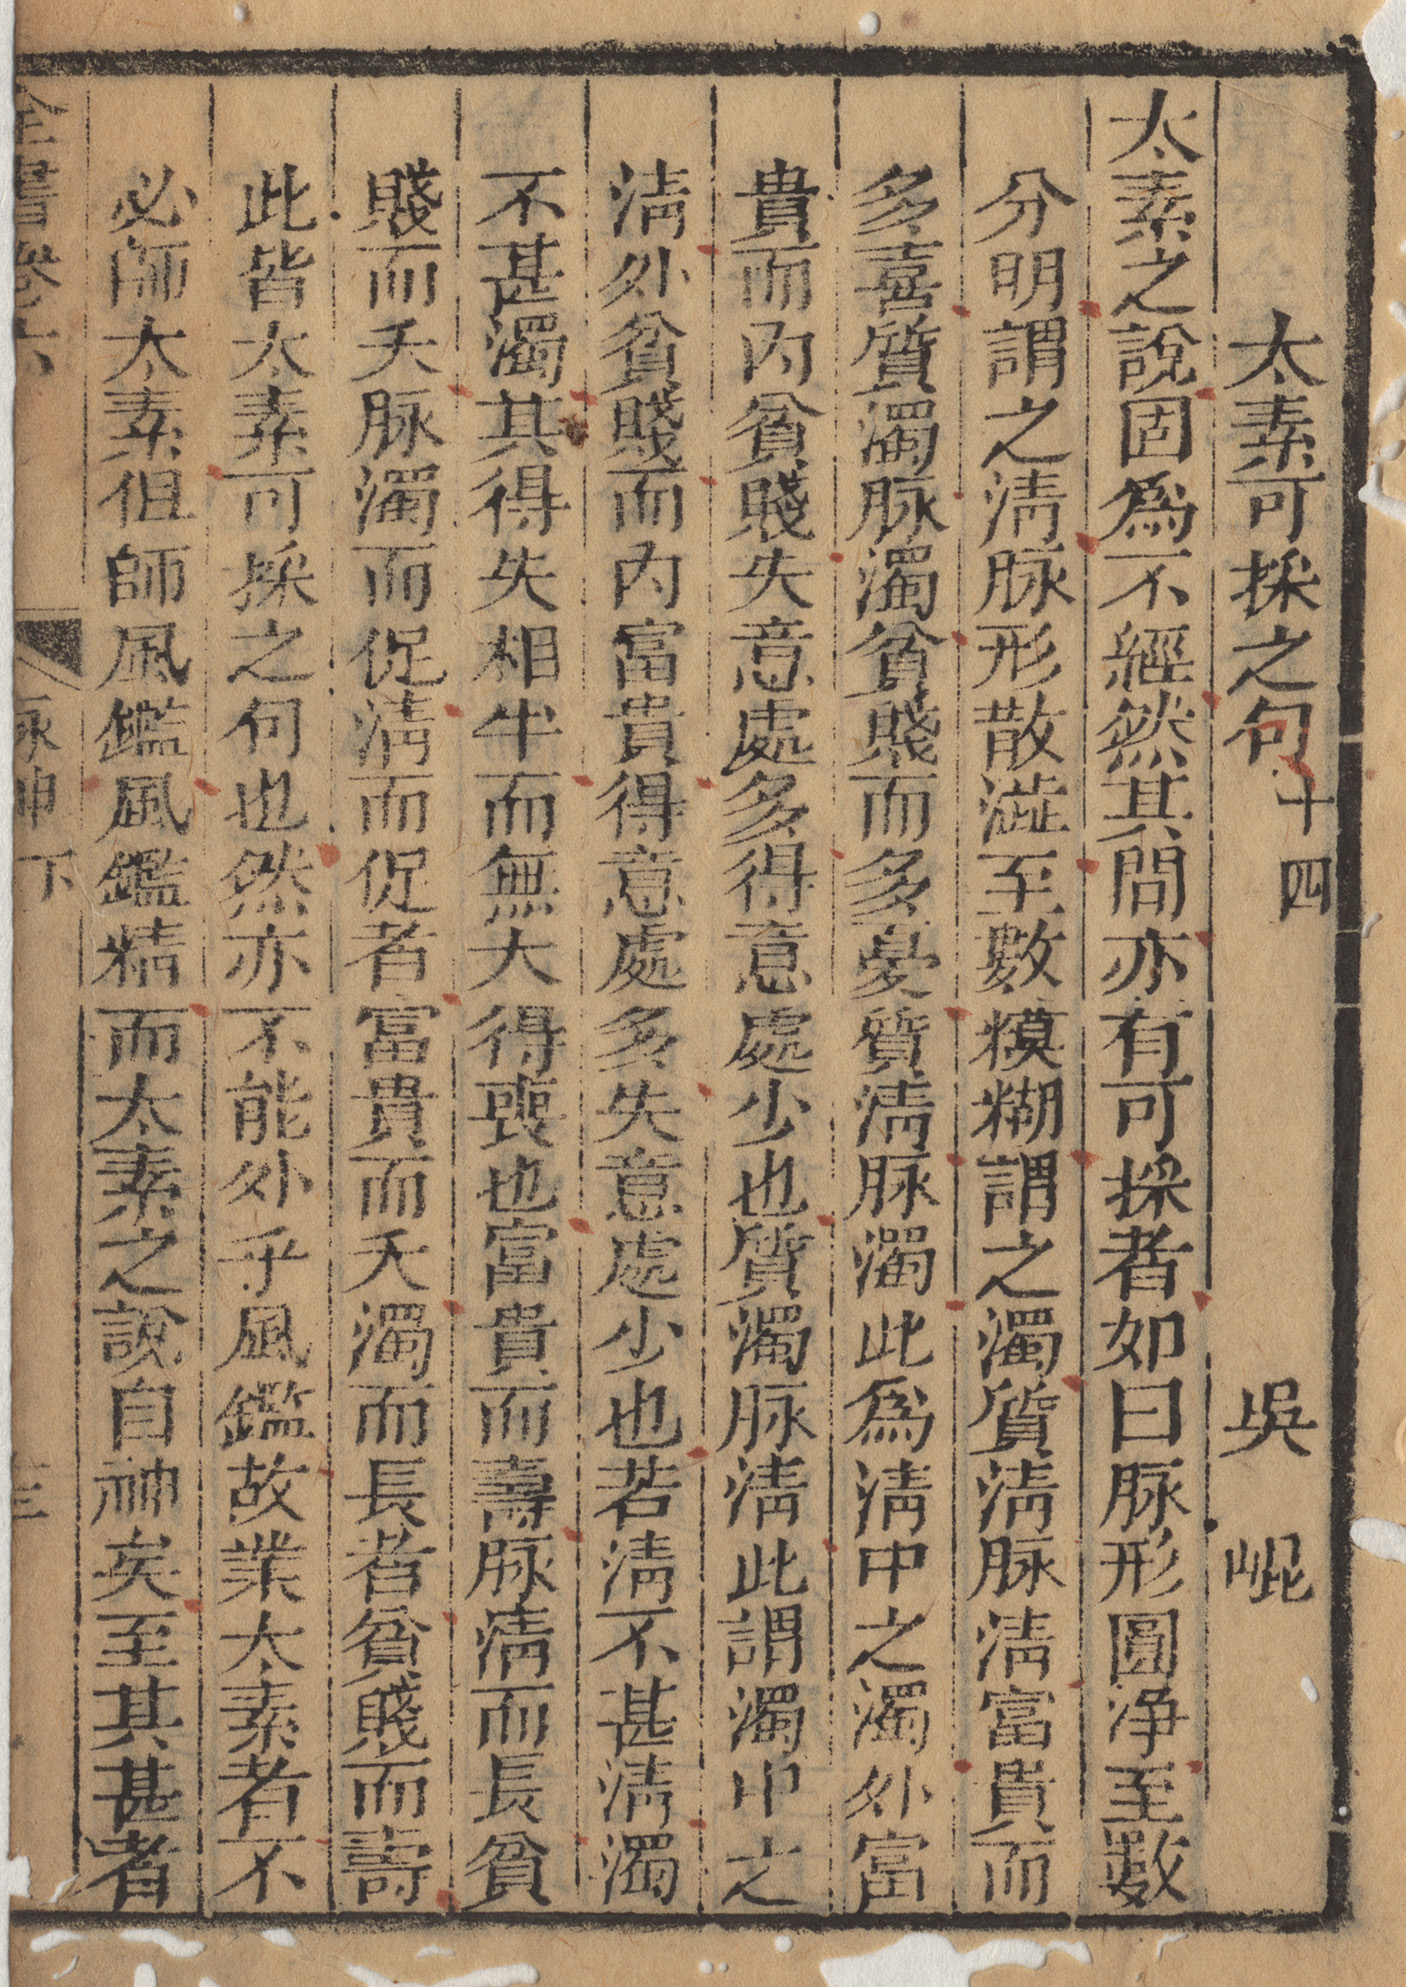 太素可採之句十四　吳崐
太素之說固爲不經然其間亦有可採者如曰脉形圓净至數
分明謂之淸脉形散澁至數模糊謂之濁質淸脉淸富貴而
多喜質濁脉濁貧賤而多憂質淸脉濁此爲淸中之濁外富
貴而內貧賤失意處多得意處少也質濁脉淸此謂濁中之
淸外貧賤而內富貴得意處多失意處少也若淸不甚淸濁
不甚濁其得失相半而無大得喪也富貴而壽脉淸而長貧
賤而夭脉濁而促淸而促者富貴而夭濁而長者貧賤而壽
此皆太素可採之句也然亦不能外乎風鑑故業太素者不
必師太素但師風鑑風鑑精而太素之說自神矣至其甚者
全書卷六　脉神下